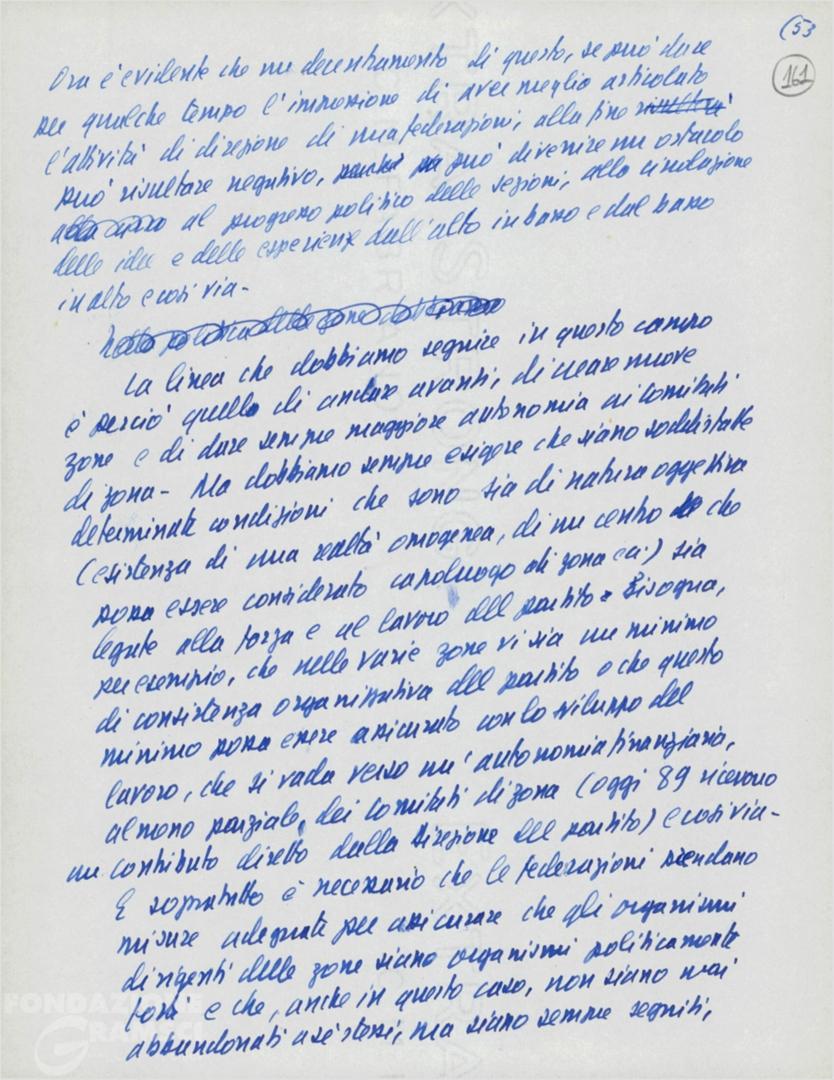 (53
161
Ora è evidente che un decentramento di questo, se può dare
per qualche tempo l'impressione di aver meglio articolato
l'attività di direzione di una federazioni, alla fine risulterà
può risultare negativo, perché può divenire un ostacolo
alla al progresso politico delle sezioni, alla circolazione
delle idee e delle esperienze dall'alto in basso e dal basso
in alto e così via-
La linea che dobbiamo seguire in questo campo
è perciò quella di andare avanti, di creare nuove
zone e di dare sempre maggiore autonomia ai Comitati
di zona- Ma dobbiamo sempre esigere che siano soddisfatte
determinate condizioni che sono sia di natura oggettiva
(esistenza di una realtà omogenea, di un centro che
possa essere considerato capoluogo di zona ecc) sia
legate alla forza e al lavoro del partito. Bisogna,
per esempio, che nelle varie zone vi sia un minimo
di consistenza organizzativa del partito o che questo
minimo possa essere assicurato con lo sviluppo del
lavoro, che si vada verso un'autonomia finanziaria,
almeno parziale, dei Comitati di zona (oggi 89 ricevono
un contributo diretto dalla Direzione del partito) e così via-
E soprattutto è necessario che le federazioni prendano
misure adeguate per assicurare che gli organismi
dirigenti delle zone siano organismi politicamente
forti e che, anche in questo caso, non siano mai
abbandonati a sé stessi, ma siano sempre seguiti,
FONDAZIONE
GRAMSCI